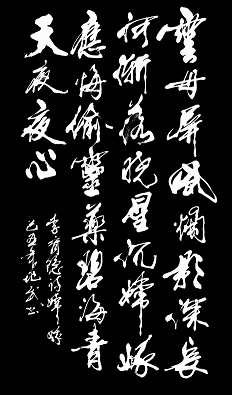 雲母屏風燭影深長
河漸落曉星沉嫦娥
應悔偷靈藥碧海青
天夜夜心
李商隱詩嫦娥
己丑年